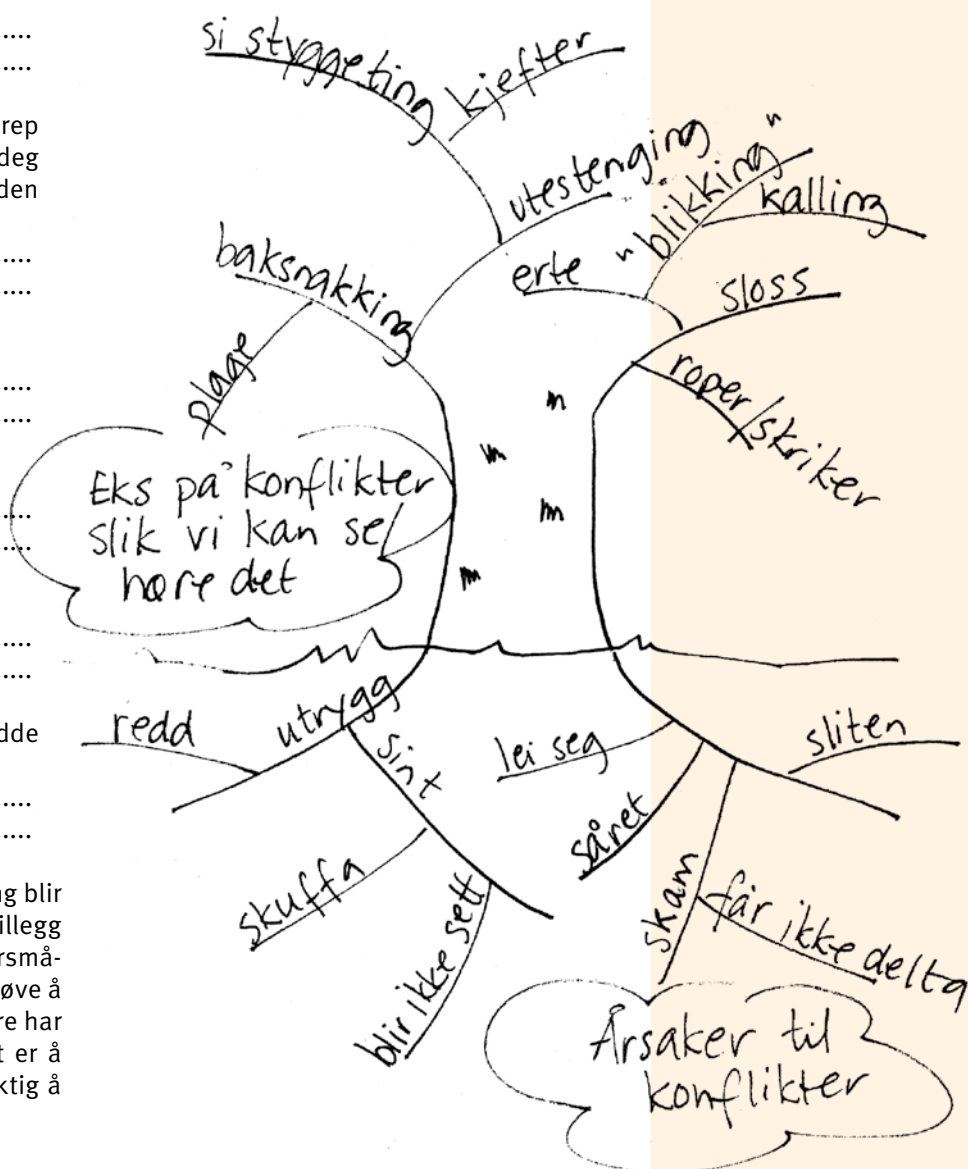 ....
....
rep
deg
den
....
....
....
....
....
....
....
....
dde
....
....
ng blir
illegg
rsmå-
øve å
re har
t er å
ktig å
si styggeting
kjefter
utestenging
"blikking"
kalling
erte
baksnakking
sloss
plage
roper/skriker
Eks på konflikter
slik vi kan se/
høre det
redd
utrygg
sint
lei seg
sliten
såret
skuffa
skam
får ikke delta
blir ikke sett
Årsaker til
konflikter